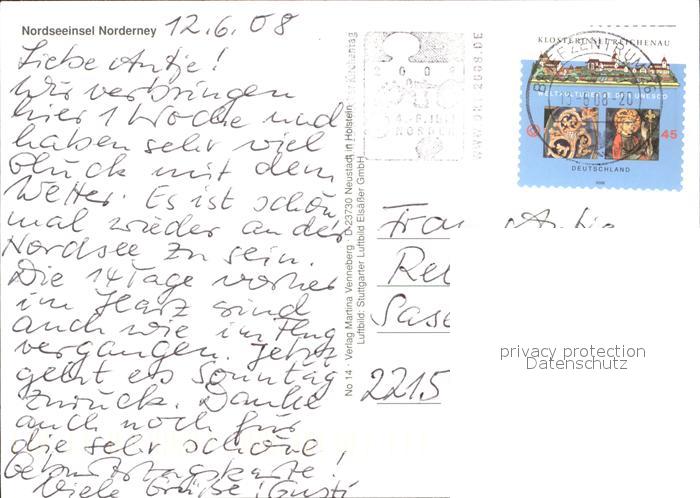 Nordseeinsel Norderney
12.6.08
Liebe Antje!
Wir verbringen
hier 1 Woche und
haben sehr viel
Glück mit dem
Wetter. Es ist schön,
mal wieder an der
Nordsee zu sein.
Die 14 Tage vorher
im Harz sind
auch wie im Flug
vergangen. Jetzt
geht es Sonntag
zurück. Danke
auch noch für
die sehr schöne
Geburtstagskarte!
Viele Grüße! Gusti
No 14 · Verlag Martina Venneberg · D-23730 Neustadt in Holstein
Luftbild: Stuttgarter Luftbild Elsäßer GmbH
KLOSTERINSEL REICHENAU
WELTKULTURERBE DER UNESCO
45
DEUTSCHLAND
2008
BRIEFZENTRUM
Antje
2215
privacy protection
Datenschutz